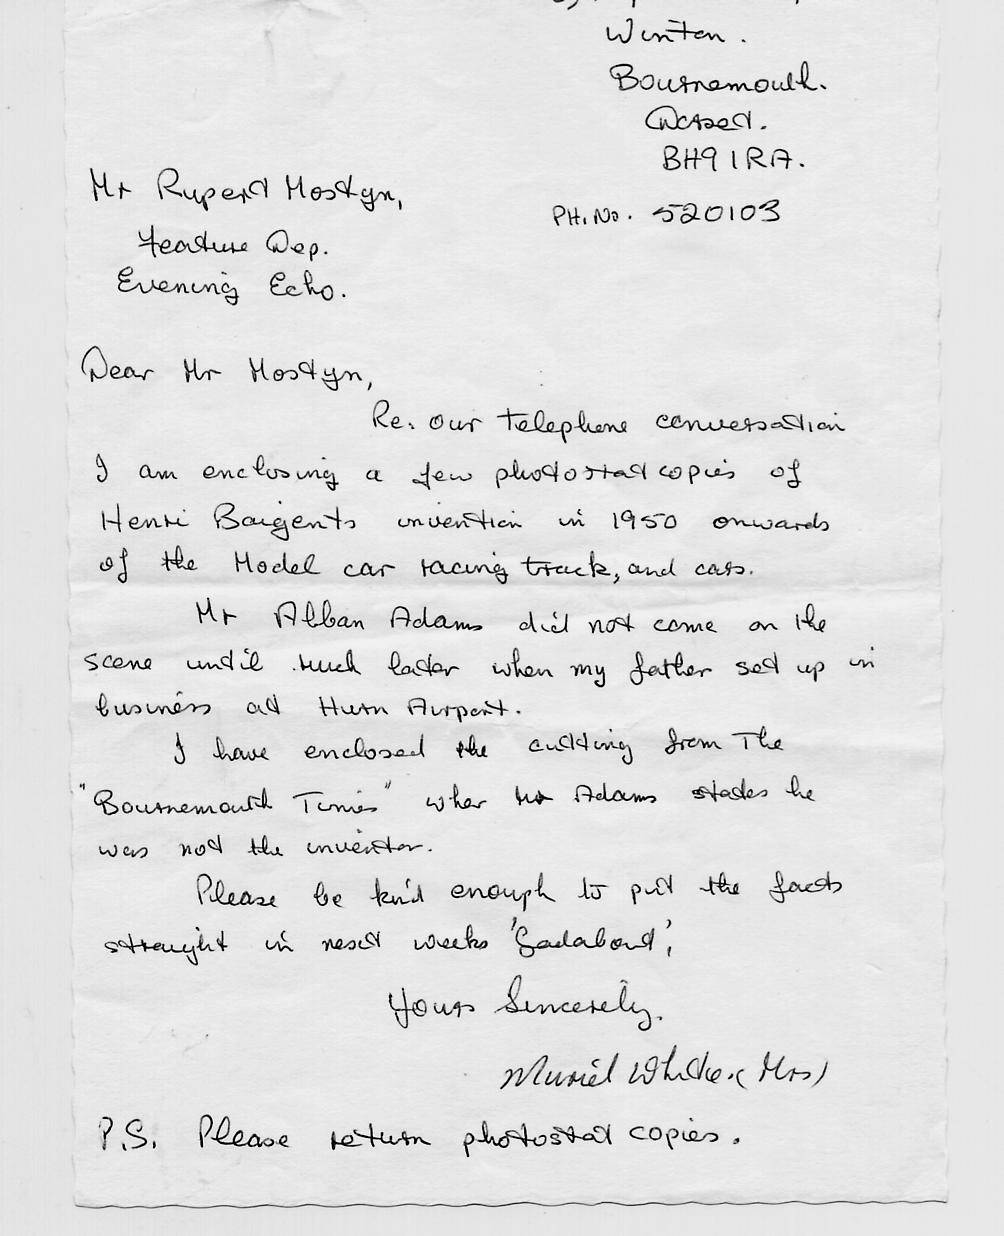 Winton.
Bournemouth.
Dorset.
BH9 1RA.
Mr Rupert Mostyn,
PH. No. 520103
Feature Dep.
Evening Echo.
Dear Mr Mostyn,
Re. our telephone conversation
I am enclosing a few photostat copies of
Henri Baigents invention in 1950 onwards
of the Model car racing track, and cars.
Mr Alban Adams did not come on the
scene until much later when my father set up in
business at Hurn Airport.
I have enclosed the cutting from The
"Bournemouth Times" wher Mr Adams states he
was not the inventor.
Please be kind enough to put the facts
straight in next weeks 'Gadabout',
Yours Sincerely.
Muriel White. (Mrs)
P.S. Please return photostat copies.